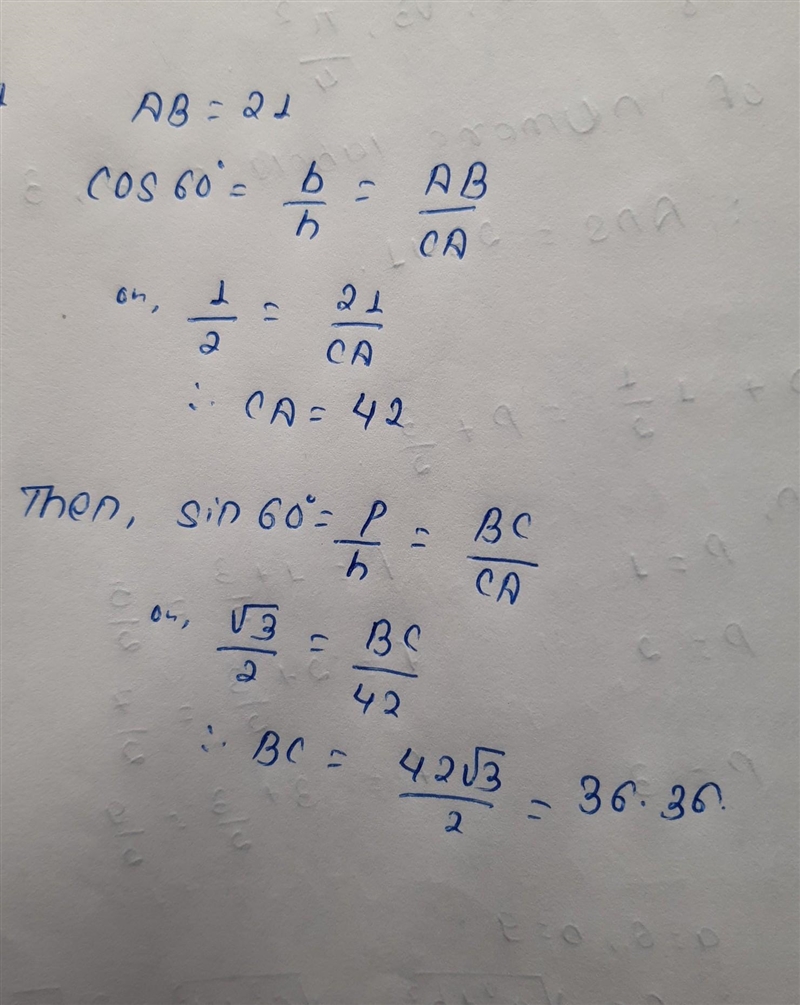 AB = 21
cos 60° = b/h = AB/CA
or, 1/2 = 21/CA
∴ CA = 42
Then, sin 60° = p/h = BC/CA
or, √3/2 = BC/42
∴ BC = 42√3/2 = 36.36.